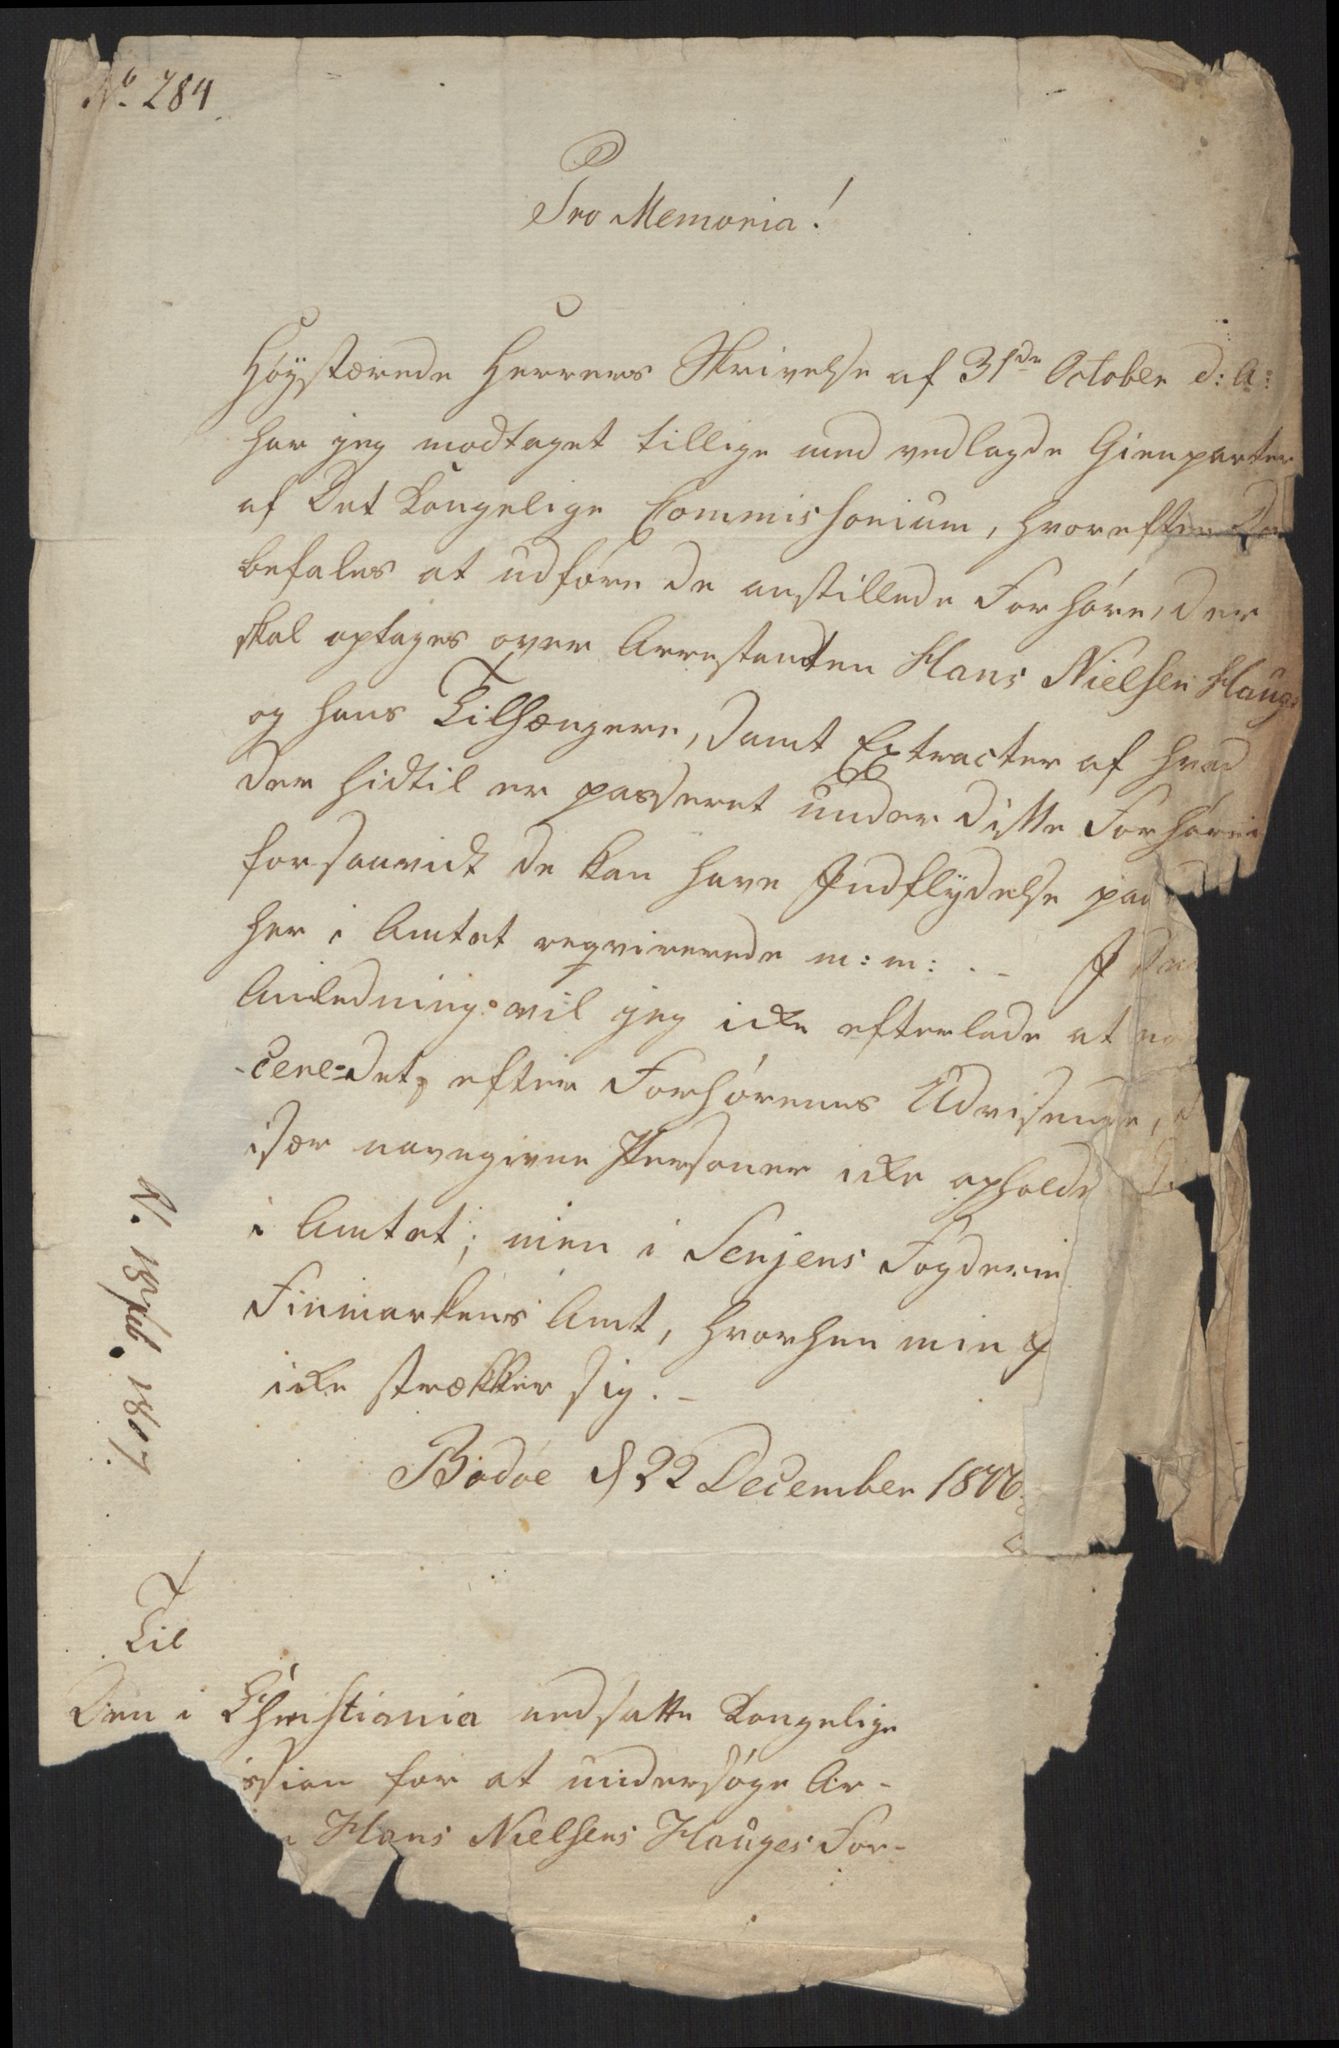 No. 284
Pro Memoria!
Høystærede Herrers Skrivelse af 31de October d: A:
har jeg modtaget tillige med vedlagde Gienparter
af Det Kongelige Commissorium, hvorefter De
befales at udføre de anstillede Forhøre, der
skal optages over Arrestanten Hans Nielsen Hauge
og hans Tilhængere, samt Extracter af hvad
der hidtil er passeret under disse Forhører
forsaavidt de kan have Indflydelse paa
her i Amtet reqvirerede m: m: . - I
Anledning vil jeg icke efterlade at
cere det, efter Forhørenes Udvisende,
især navngivne Personer icke opholde
i Amtet; men i Senjens Fogderie
Finmarkens Amt, hvorhen min
icke strækker sig. -
Bodøe d 22 December 1806
R. 18 feb. 1807.
Til
Den i Christiania nedsatte Kongelige
ssion for at undersøge Ar-
Hans Nielsens Hauges For-